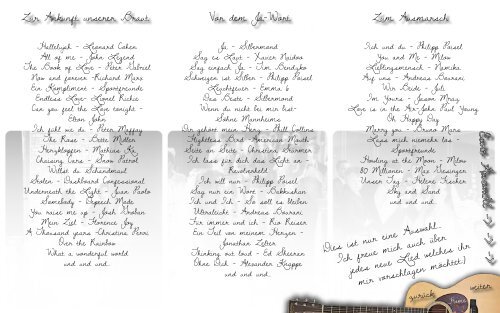 Zur Ankunft unserer Braut
Hallelujah - Leonard Cohen
All of me - John Legend
The Book of Love - Peter Gabriel
Now and forever - Richard Marx
Ein Kompliment - Sportfreunde
Endless Love - Lionel Richie
Can you feel the Love tonight -
Elton John
Ich fühl wie du - Peter Maffay
The Rose - Bette Midler
Chasing Cars - Snow Patrol
Willst du - Schandmaul
Stolen - Dashboard Confessional
Somebody - Depeche Mode
You raise me up - Josh Groban
A Thousand years - Christina Perri
Over the Rainbow
What a wonderful world
und und und..
Vor dem Ja-Wort
Ja - Silbermond
Sag es Laut - Xavier Naidoo
Sag einfach Ja - Tim Bendzko
Das Beste - Silbermond
Wenn du nicht bei mir bist-
Söhne Mannheims
Dir gehört mein Herz - Phil Collins
Flightless Bird - American Mouth
Seite an Seite - Christina Stürmer
Ich lass für dich das Licht an -
Revolverheld
Ich will nur - Philipp Poisel
Ich und Ich - So soll es bleiben
Ultraleicht - Andreas Bourani
Für immer und ich - Rio Reiser
Ein Teil von meinem Herzen -
Jonathan Zelter
Thinking out loud - Ed Sheeran
Ohne Dich - Alexander Knappe
und und und..
Zum Ausmarsch
Ich und du - Philipp Poisel
You and Me - Milow
Lieblingsmensch - Namika
Auf uns - Andreas Bourani
Wir Beide - Juli
I'm Yours - Jason Mraz
Love is in the Air - John Paul Young
Oh Happy Day
Marry you - Bruno Mars
Lass mich niemals los
Sportfreunde
Howling at the Moon - Milow
80 Millionen - Max Giesinger
Unser Tag - Helene Fischer
und und und..
Dies ist nur eine Auswahl..
Ich freue mich auch über
jedes neue Lied welches ihr
mir vorschlagen möchtet:)
Eure Auswahl -> -> ->
zurück
weiter